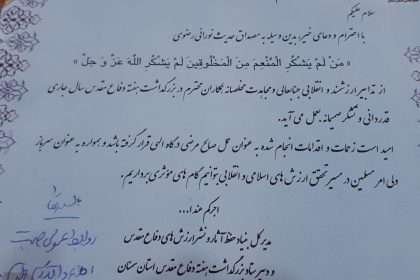 سلام علیکم
با احترام و دعای خیر؛ بدین وسیله به مصداق حدیث نورانی رضوی
« مَنْ لَمْ یَشْکُرِ الْمُنْعِمَ مِنَ الْمَخْلُوقینَ لَمْ یَشْکُرِ اللّهَ عَزَّ وَ جَلَّ »
از تدابیر ارزشمند و انقلابی جنابعالی و مجاهدت مخلصانه همکاران محترم در بزرگداشت هفته دفاع مقدس سال جاری
قدردانی و تشکر صمیمانه بعمل می آید.
امید است زحمات و اقدامات انجام شده به عنوان عمل صالح مرضی درگاه الهی قرار گرفته باشد و همواره به عنوان سرباز
ولی امر مسلمین در مسیر تحقق ارزش های اسلامی و انقلابی بتوانیم گام های مؤثری برداریم.
اجرکم عندا...
مدیر کل بنیاد حفظ آثار و نشر ارزش های دفاع مقدس
و دبیر ستاد بزرگداشت هفته دفاع مقدس استان سمنان
روابط عمومی جهت